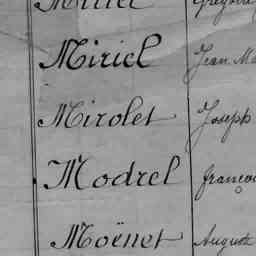 Miriel Jean Ma
Mirolet Joseph
Modrel françoi
Moënet Auguste